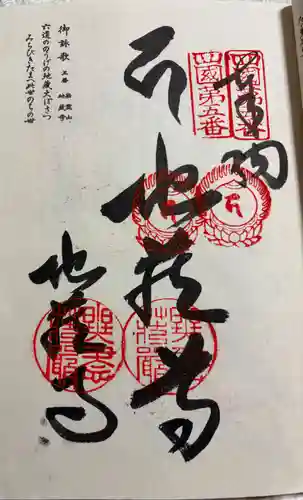 奉納
四國第五番
四國第五番
地蔵寺
地蔵寺
御詠歌 五番 無盡山
地蔵寺
六道ののうげの地蔵大ぼさつ
みちびきたまへ此世のちの世